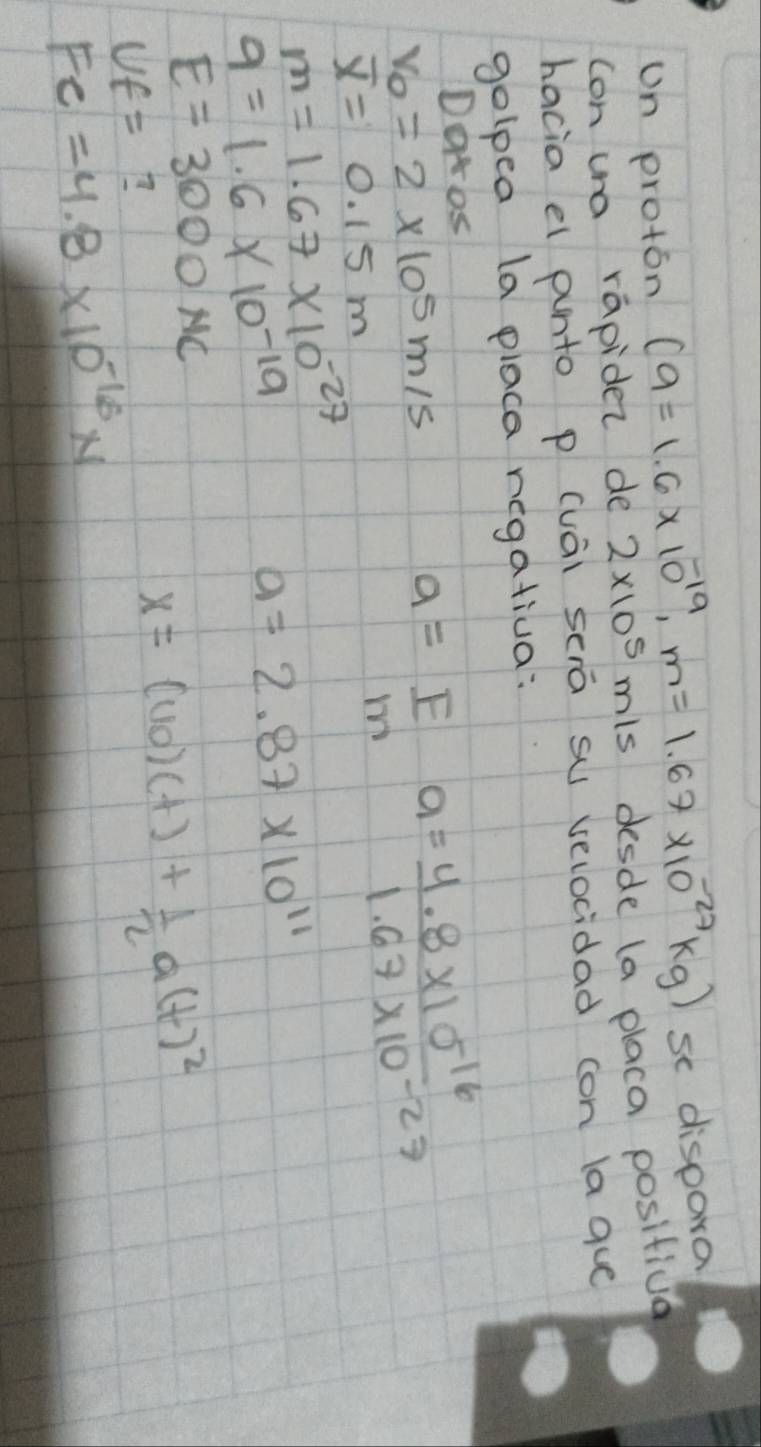 Un protón (q = 1.6 x 10^-19, m = 1.67 x 10^-27 kg) se dispara
con una rápidez de 2x10^5 m/s desde la placa positiva
hacia el punto p cuál será su velocidad con la que
golpea la placa negativa:
Datos
Vo = 2 x 10^5 m/s
x̄ = 0.15 m
m = 1.67 x 10^-27
q = 1.6 x 10^-19
E = 3000 NC
Vf = ?
Fe = 4.8 x 10^-16 N
a = F/m   a = 4.8 x 10^-16 / 1.67 x 10^-27
a = 2.87 x 10^11
x = (vo)(t) + 1/2 a(t)^2